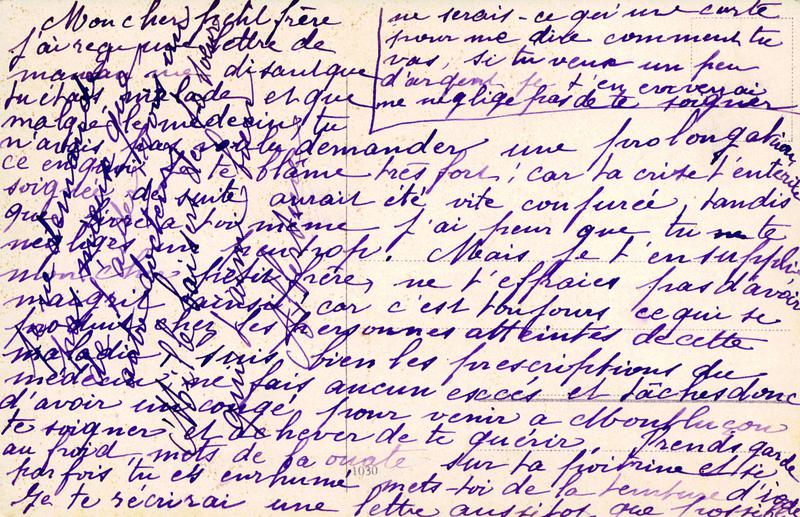 Mon cher petit frère
j'ai reçu une lettre de
maman me disant que
tu étais malade et que
malgré le médecin, tu
n'avais pas voulu demander une prolongation
ce en quoi je te blâme très fort; car ta crise d'entérite
soignée de suite aurait été vite conjurée, tandis
que livré à toi même j'ai peur que tu ne te
négliges un peu trop. Mais je t'en supplie
mon cher petit frère, ne t'effraies pas d'avoir
maigrit ainsi, car c'est toujours ce qui se
produit chez les personnes atteintes de cette
maladie, suis bien les prescriptions du
médecin; ne fais aucun excès et tâches donc
d'avoir un congé pour venir a Montluçon
te soigner et achever de te guérir, Prends garde
au froid, mets de la ouate sur ta poitrine et si
parfois tu es enrhumé mets-toi de la teinture d'iode
Je te récrirai une lettre aussitôt que possible
ne serais-ce qu'une carte
pour me dire comment tu
vas, si tu veux un peu
d'argent je t'en enverrai
ne néglige pas de te soigner
1030